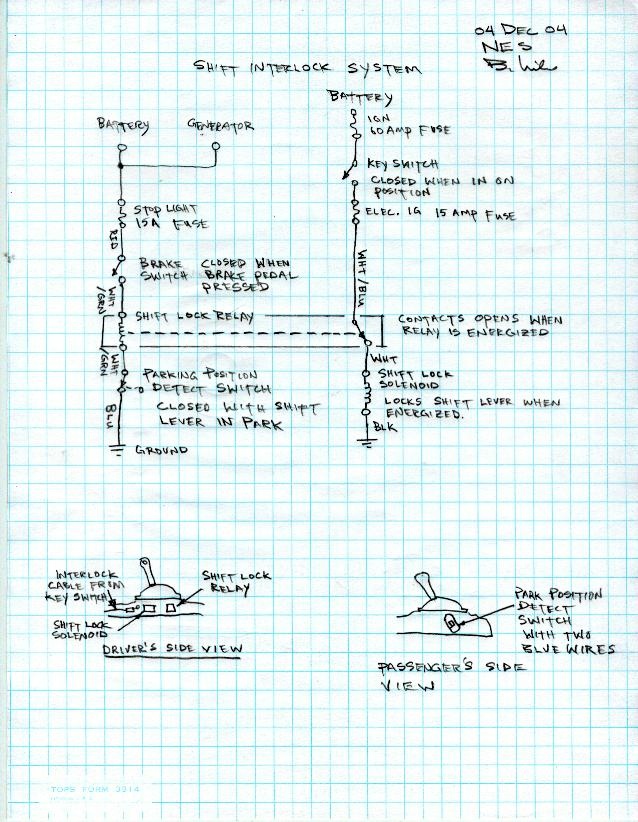 04 DEC 04
NES
SHIFT INTERLOCK SYSTEM
BATTERY
IGN
60 AMP FUSE
BATTERY
GENERATOR
KEY SWITCH
CLOSED WHEN IN ON
POSITION
STOP LIGHT
15A FUSE
ELEC. IG 15 AMP FUSE
RED
BRAKE CLOSED WHEN
SWITCH BRAKE PEDAL
PRESSED
WHT/BLU
WHT/GRN
SHIFT LOCK RELAY
CONTACTS OPENS WHEN
RELAY IS ENERGIZED
WHT/GRN
WHT
PARKING POSITION
DETECT SWITCH
CLOSED WITH SHIFT
LEVER IN PARK
SHIFT LOCK
SOLENOID
LOCKS SHIFT LEVER WHEN
ENERGIZED.
BLU
BLK
GROUND
INTERLOCK
CABLE FROM
KEY SWITCH
SHIFT LOCK
RELAY
SHIFT LOCK
SOLENOID
DRIVER'S SIDE VIEW
PARK POSITION
DETECT
SWITCH
WITH TWO
BLUE WIRES
PASSENGER'S SIDE
VIEW
TOPS FORM 3314